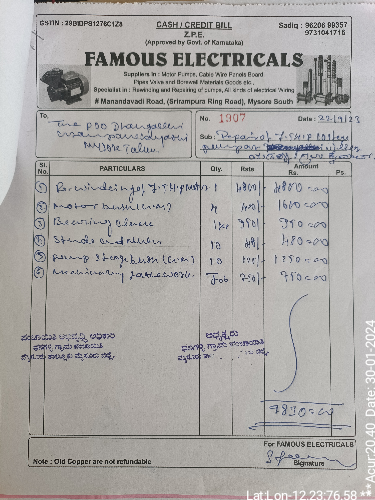 GSTIN : 29BIDPS1276C1Z8
CASH / CREDIT BILL
Sadiq : 96206 99357
9731041715
Z.P.E.
(Approved by Govt. of Karnataka)
FAMOUS ELECTRICALS
Suppliers in : Motor Pumps, Cable Wire Panels Board
Pipes Valve and Borewell Materials Goods etc.
Specialist in : Rewinding and Repairing of pumps, All kinds of Electrical works
# Manandavadi Road, (Srirampura Ring Road), Mysore South
To,
No. 1907
Date: 22/9/23
The PDO Dhangalli
Mysore Taluk
Sub: Repair of 7.5 HP
Sl. No. PARTICULARS Qty. Rate Amount Rs. Ps.
1 Rewinding of 7.5 HP motor 1 4800/- 4800=00
2 Motor bush 4 400/- 1600=00
3 Bearing 950/- 950=00
4 10 48/- 480=00
5 10
6 Job 750/- 750=00
ಪಂಚಾಯಿತಿ ಅಭಿವೃದ್ಧಿ ಅಧಿಕಾರಿ
ಧನಗಳ್ಳಿ ಗ್ರಾಮ ಪಂಚಾಯಿತಿ
ಮೈಸೂರು ತಾಲ್ಲೂಕು ಮೈಸೂರು ಜಿಲ್ಲೆ.
ಅಧ್ಯಕ್ಷರು
ಧನಗಳ್ಳಿ ಗ್ರಾಮ ಪಂಚಾಯಿತಿ
ಮೈಸೂರು ಜಿಲ್ಲೆ.
9830=00
For FAMOUS ELECTRICALS
Note : Old Copper are not refundable
Signature
Lat Lon-12.23;76.58 **Acur:20.40 Date: 30-01-2024